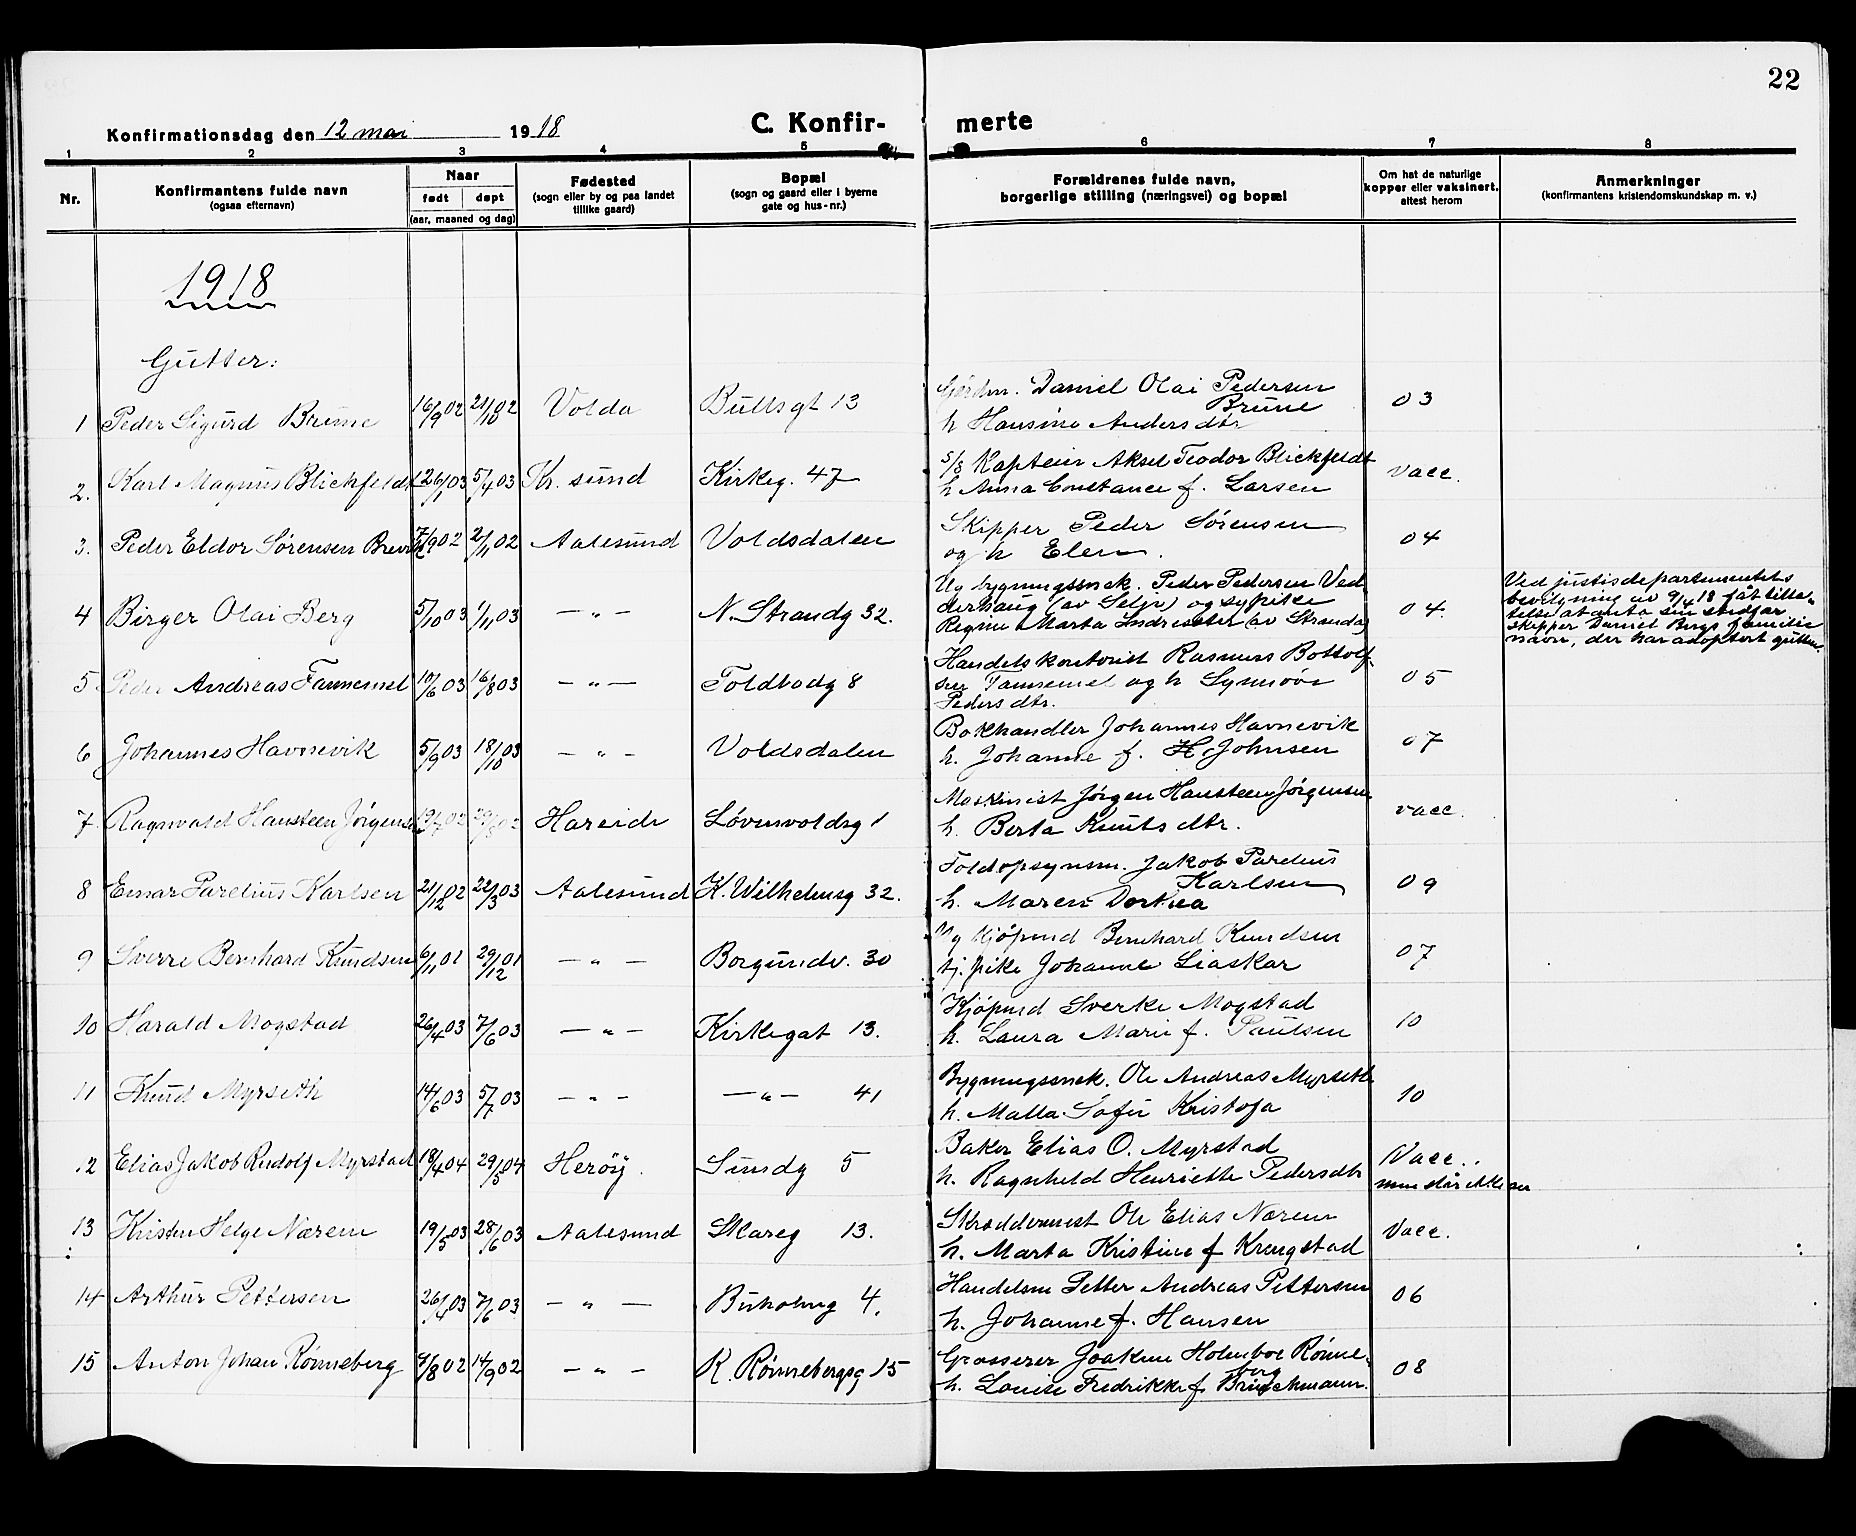 22
Konfirmationsdag den 12 mai 1918
C. Konfirmerte
1 2 3 4 5 6 7 8
Nr.
Konfirmantens fulde navn
(ogsaa efternavn)
Naar
født døpt
(aar, maaned og dag)
Fødested
(sogn eller by og paa landet
tillike gaard)
Bopæl
(sogn og gaard eller i byerne
gate og hus-nr.)
Forældrenes fulde navn,
borgerlige stilling (næringsvei) og bopæl
Om hat de naturlige
kopper eller vaksinert.
attest herom
Anmerkninger
(konfirmantens kristendomskundskap m. v.)
1918
Gutter:
1 Peder Sigurd Brune 16/9 02 21/10 02 Volda Bullsgt 13 Daniel Olai Pedersen
Brune
h Hansine Andersdtr 03
2. Karl Magnus Blickfeldt 26/1 03 5/4 03 Kr. sund Kirkeg. 47 S/S Kaptein Aksel Teodor Blickfeldt
h Anna Constance f. Larsen vacc.
3. Peder Eldor Sørensen 7/9 02 2/11 02 Aalesund Voldsdalen Skipper Peder Sørensen
og h Elen. 04
4 Birger Olai Berg 5/10 03 1/11 03 — " — N. Strandg 32. Ug bygningssnek. Peder Pedersen Ved-
derhaug (av Selje) og sypike
Regine Marta Indresæter (av Stranda) 04.
Ved justisdepartementets
bevilgning av 9/4 18 fåt tilla-
telse at anta sin stedfar
skipper Daniel Bergs familie
navn, der har adoptert gutten.
5 Peder Andreas Tannemel 10/6 03 16/8 03 — " — Toldbodg 8 Handelskontorist Rasmus Bottolf-
sen Tannemel og h Synnøve
Pedersdtr. 05
6 Johannes Havnevik 5/9 03 18/10 03 — " — Voldsdalen Bokhandler Johannes Havnevik
h. Johanne f. H. Johnsen 07
7 Ragnvald Hansteen Jørgensen Hareide Løvenvoldsg 1 Maskinist Jørgen Hansteen Jørgensen
h. Berta Knutsdtr. vacc.
8 Einar Parelius Karlsen 21/12 02 22/3 03 Aalesund K. Wilhelmsg 32. Toldopsynsm. Jakob Parelius
Karlsen
h. Maren Dorthea 09
9 Sverre Bernhard Knudsen 6/11 01 29/12 01 — " — Borgundv. 30 Ug kjøpmd Bernhard Knudsen
tj. pike Johanne Liaskar 07
10 Harald Mogstad 26/4 03 7/6 03 — " — Kirkegat 13. Kjøpmd Sverke Mogstad
h. Laura Marie f. Paulsen 10
11 Knud Myrseth 14/6 03 5/7 03 — " — — " — 41 Bygningssnek. Ole Andreas Myrseth
h. Malla Sofie Kristofa 10
12 Elias Jakob Rudolf Myrstad 18/4 04 29/5 04 Herøy. Sundg 5 Baker Elias O. Myrstad
h. Ragnhild Henriette Pedersdtr Vacc.
13 Kristen Helge Nærem 19/5 03 28/6 03 Aalesund Skareg 13. Skræddermest Ole Elias Nærem
h. Marta Kristine f Krengstad Vacc.
14 Arthur Pettersen 26/4 03 7/6 03 — " — Buholmg 4. Handelsm Petter Andreas Pettersen
h. Johanne f. Hansen 06
15 Anton Johan Rønneberg 7/8 02 14/9 02 — " — K. Rønnebergsg 15 Grosserer Joakim Holmboe Rønne-
berg
h. Louise Fredrikke f Brinchmann. 08